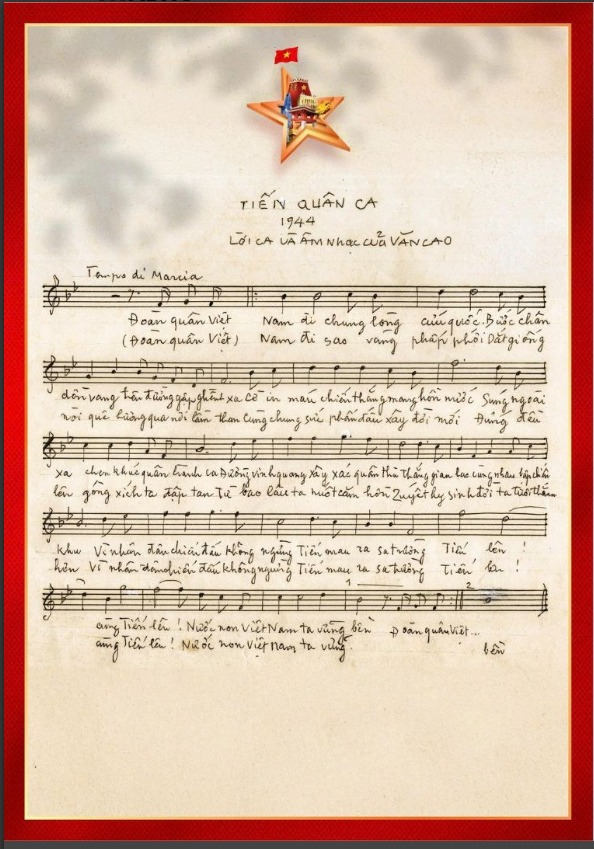 TIẾN QUÂN CA
1944
LỜI CA VÀ ÂM NHẠC CỦA VĂN CAO
Tempo di Marcia
Đoàn quân Việt Nam đi chung lòng cứu quốc. Bước chân
(Đoàn quân Việt) Nam đi sao vàng phấp phới Dắt giống
dồn vang trên đường gập ghềnh xa Cờ in máu chiến thắng mang hồn nước Súng ngoài
nòi quê hương qua nơi lầm than Cùng chung sức phấn đấu xây đời mới Đứng đều
xa chen khúc quân hành ca Đường vinh quang xây xác quân thù Thắng gian lao cùng nhau lập chiến
lên gông xích ta đập tan Từ bao lâu ta nuốt căm hờn Quyết hy sinh đời ta tươi thắm
khu Vì nhân dân chiến đấu không ngừng Tiến mau ra sa trường Tiến lên !
hơn Vì nhân dân chiến đấu không ngừng Tiến mau ra sa trường Tiến lên !
1 2
cùng Tiến lên ! Nước non Việt Nam ta vững bền Đoàn quân Việt...
cùng Tiến lên ! Nước non Việt Nam ta vững bền